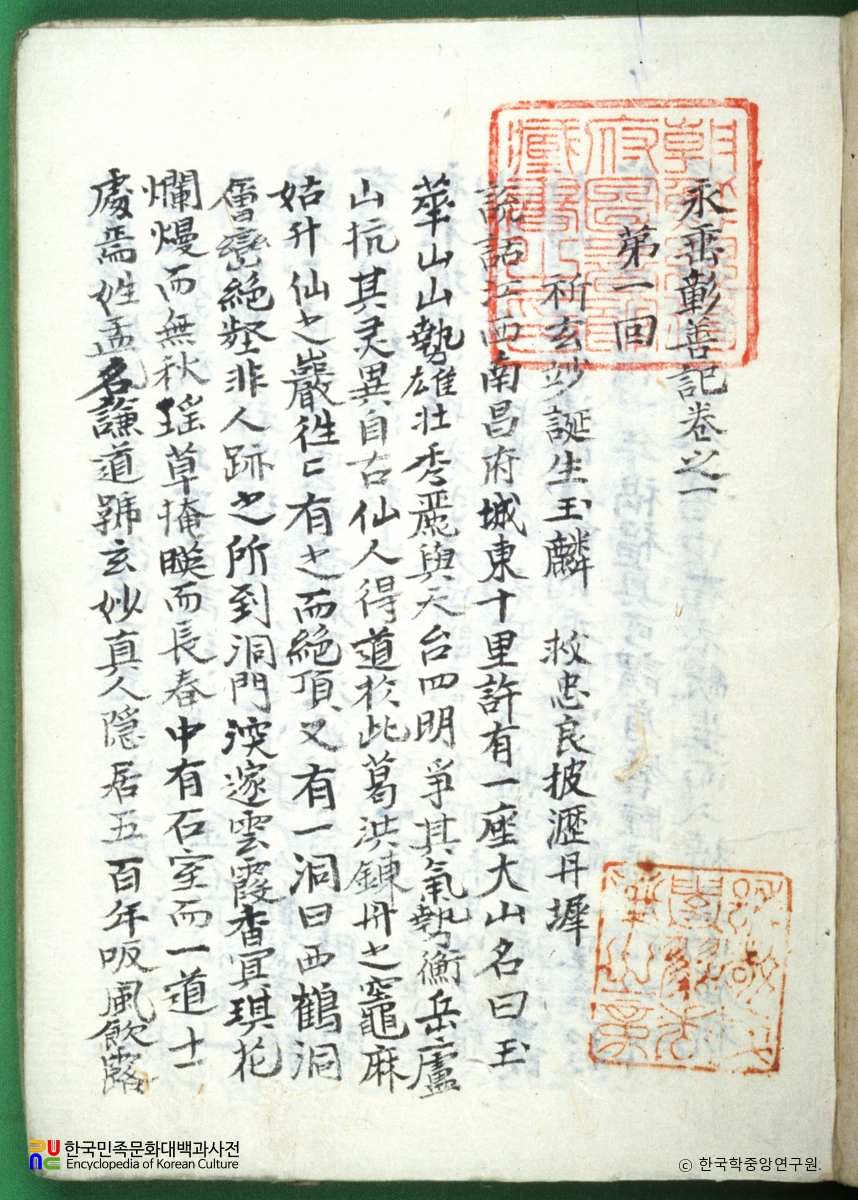 永垂彰善記卷之一
第一回
祈玄妙誕生玉麟 救忠良披瀝丹墀
說話江西南昌府城東十里許有一座大山名曰玉
華山山勢雄壯秀麗與天台四明爭其氣勢衡岳廬
山抗其灵異自古仙人得道於此葛洪鍊丹之竈麻
姑升仙之巖徃〻有之而絶頂又有一洞曰西鶴洞
層巒絶壑非人跡之所到洞門深邃雲霞杳冥琪花
爛熳而無秋瑤草掩暎而長春中有石室而一道士
處焉姓孟名謙道號玄妙真人隱居五百年吸風飮露
한국민족문화대백과사전
Encyclopedia of Korean Culture
© 한국학중앙연구원.